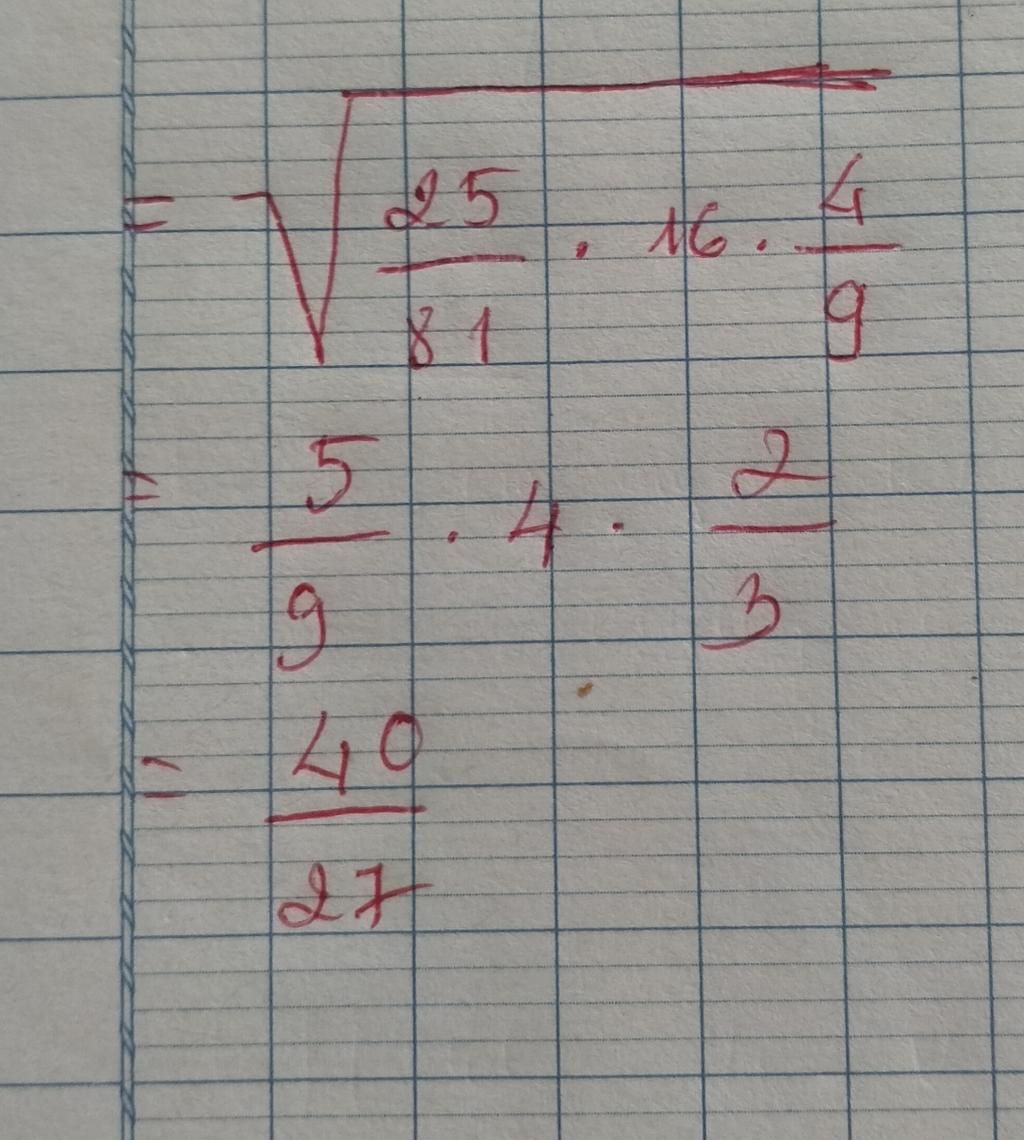 = √(25/81 . 16 . 4/9)
= 5/9 . 4 . 2/3
= 40/27